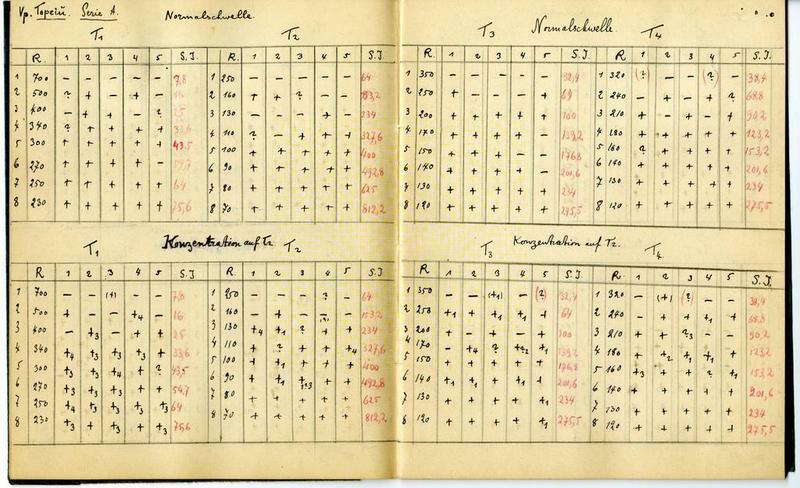 Vp. Topciu. Serie A. Normalschwelle.
T1 T2
R. 1 2 3 4 5 S.J. R. 1 2 3 4 5 S.J.
1 700 — — — — — 7,8 1 250 — — — — — 64
2 500 ? + — + — 2 160 + + ? — — 153,2
3 400 — + + — ? 25 3 130 — — — + — 234
4 340 ? + + + + 33,6 4 110 ? — + + + 327,6
5 300 + + + + + 43.5 5 100 + + + + + 400
6 270 + + + + — 54,7 6 90 + + + + + 492,8
7 250 + + + + + 64 7 80 + + + + + 625
8 230 + + + + + 75,6 8 70 + + + + + 812,2
T1 Konzentration auf T2 T2
R 1 2 3 4 5 S.J. R. 1 2 3 4 5 S.J.
1 700 — — (+) — — 7,8 1 250 — — — ? — 64
2 500 + — — +4 — 16 2 160 — + — — 153,2
3 400 — +3 — + — 25 3 130 +4 +1 ? + + 234
4 340 +4 +3 +3 +3 + 33,6 4 110 + — + + +4 327,6
5 300 +3 +3 +4 + ? 43,5 5 100 + +1 + + + 400
6 270 +3 +3 +3 + + 54,7 6 90 + +1 +3 + + 492,8
7 250 +4 +3 +3 +3 +3 64 7 80 + + + + + 625
8 230 +3 + +3 + +3 75,6 8 70 + + + + + 812,2
T3 Normalschwelle. T4
R. 1 2 3 4 5 S.J. R. 1 2 3 4 5 S.J.
1 350 — — — — — 32,4 1 320 (?) — — (?) — 38,4
2 250 + — — — — 64 2 240 — + — + ? 68,8
3 200 + + + + + 100 3 210 + — + — + 90,2
4 170 + + + + — 139,2 4 180 + + + + + 123,2
5 150 + + + — — 176,8 5 160 ? + + + + 153,2
6 140 + + + + — 201,6 6 140 + + + + + 201,6
7 130 + + + + + 234 7 130 + + + + + 234
8 120 + + + + + 275,5 8 120 + + + + + 275,5
T3 Konzentration auf T2. T4
R 1 2 3 4 5 S.J. R. 1 2 3 4 5 S.J.
1 350 — — (+1) — (?) 32,4 1 320 — (+) (?) — — 38,4
2 250 +1 + +1 +1 + 64 2 240 — + — +1 — 68,8
3 200 + ? + — — 100 3 210 + — ?3 — — 90,2
4 170 — +4 ? +2 — 139,2 4 180 + +2 +1 +1 + 123,2
5 150 + + + + + 176,8 5 160 +3 + + ? +1 153,2
6 140 + +1 + +1 + 201,6 6 140 + + + + + 201,6
7 130 + + + + +1 234 7 130 + + + + + 234
8 120 + + + + +1 275,5 8 120 + + + + + 275,5